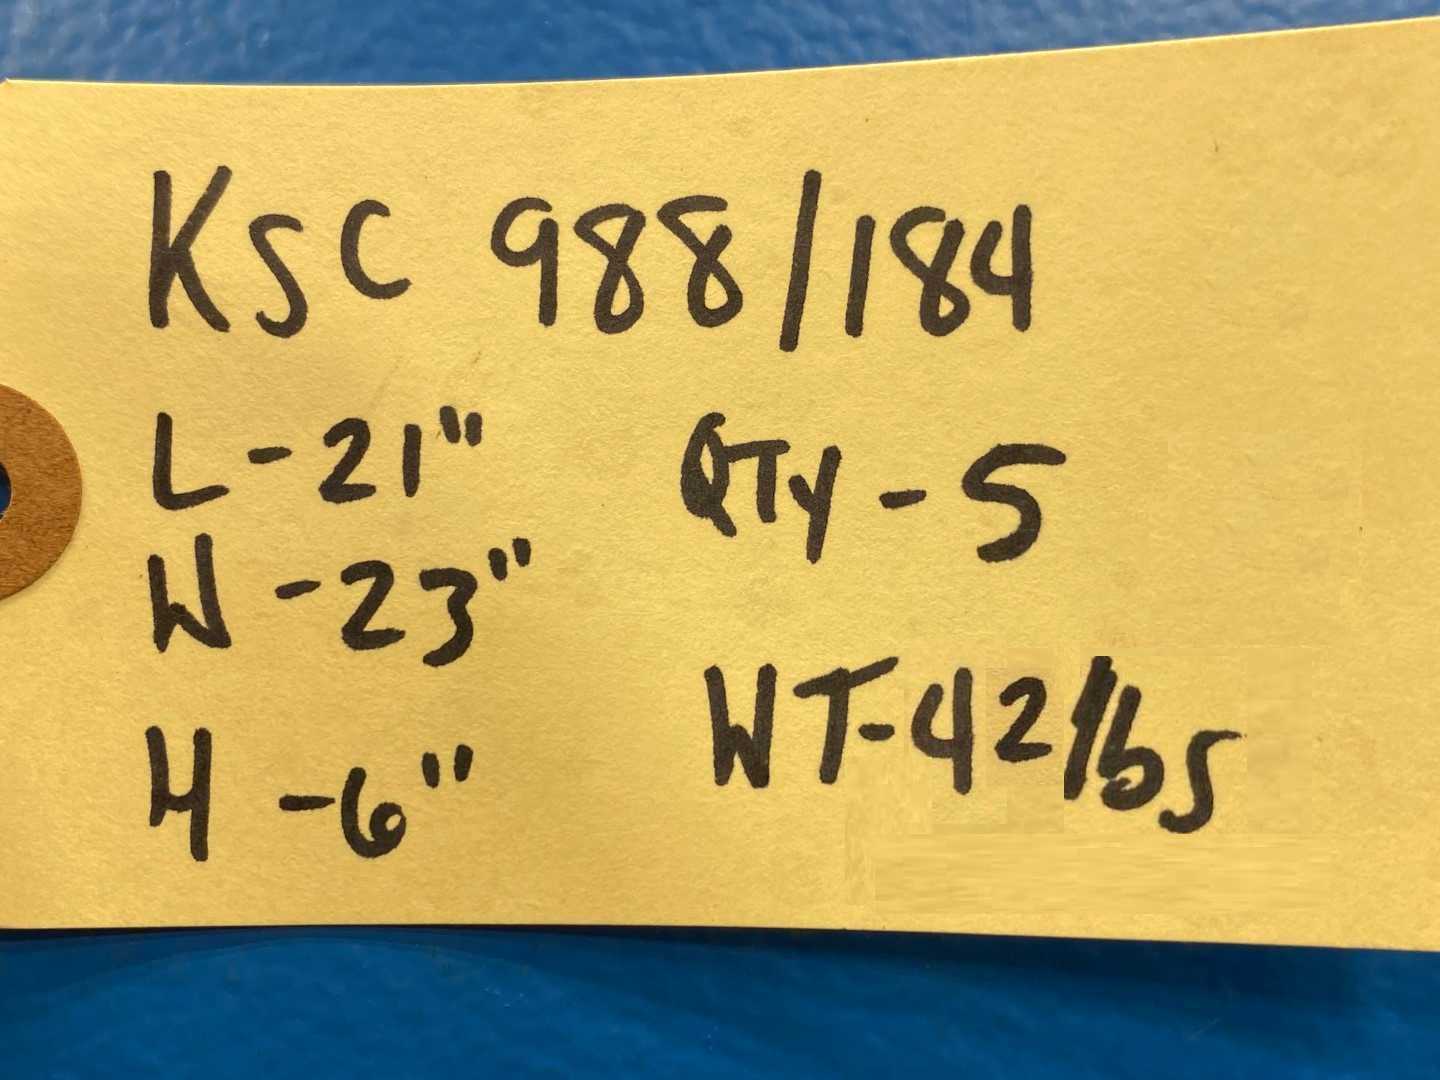 KSC 988/184
L-21" QTY-5
W-23"
WT-42lbs
H-6"